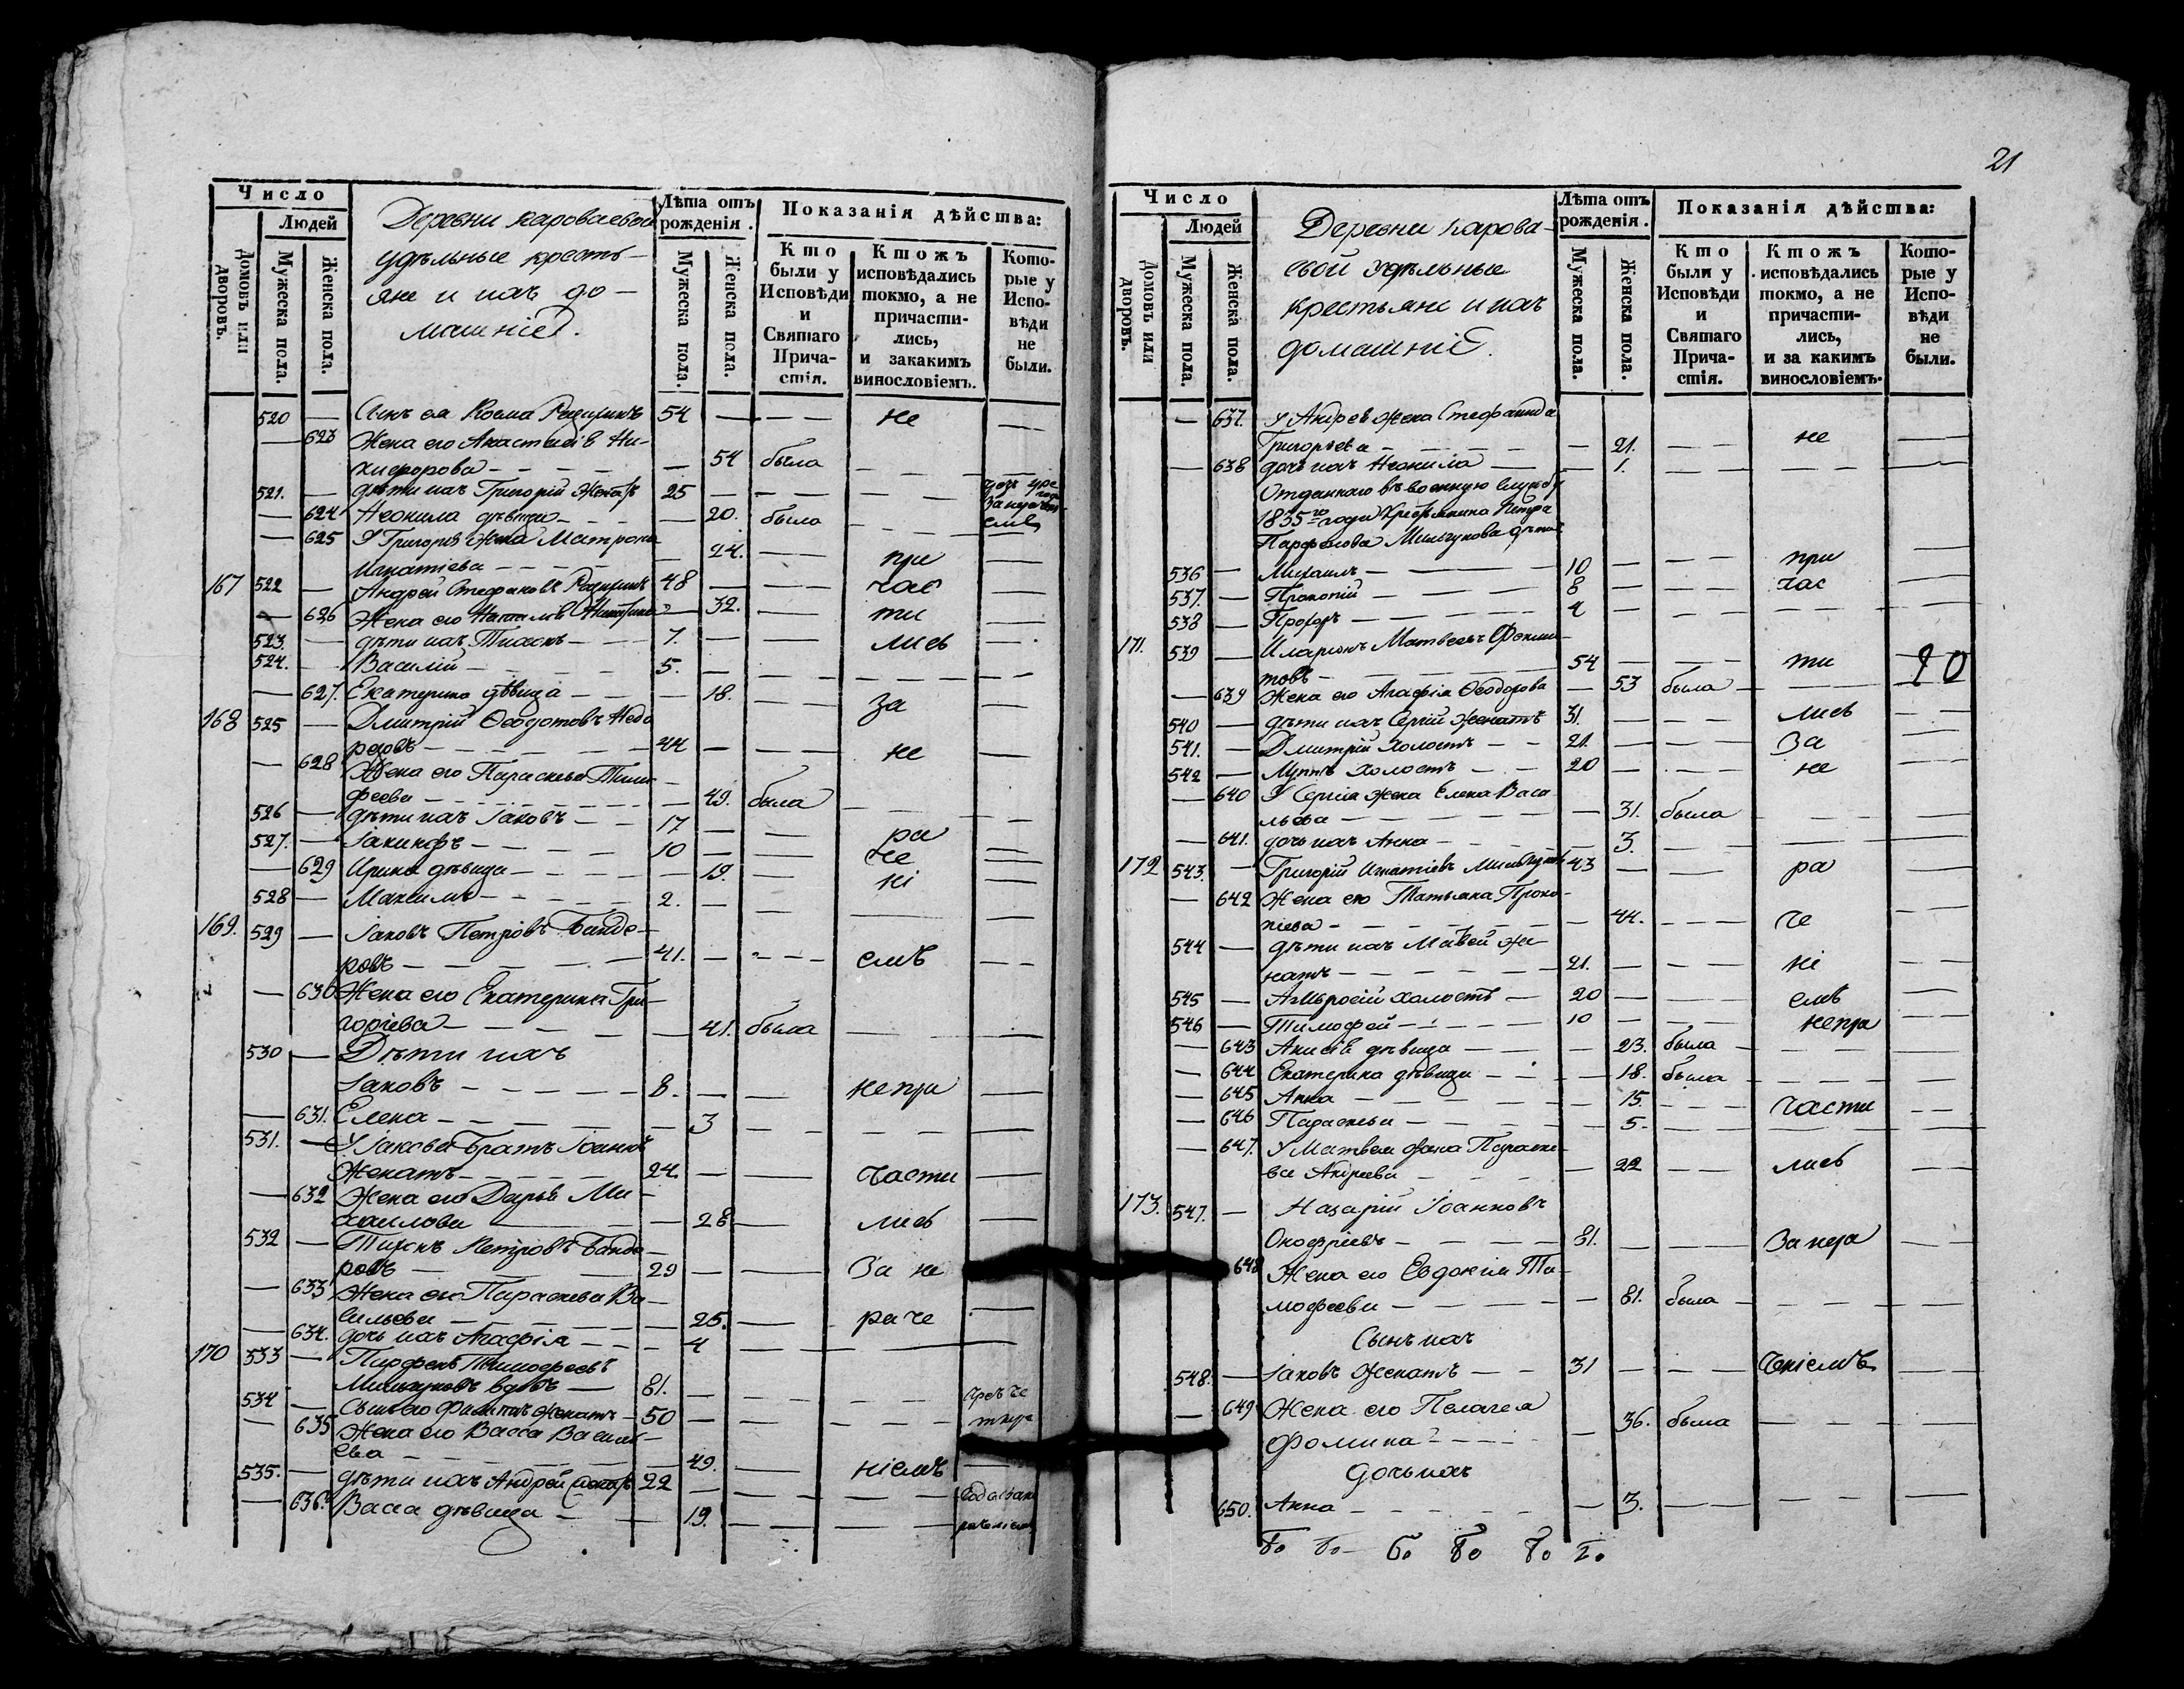 Число
Людей
Домовъ или дворовъ.
Мужеска пола.
Женска пола.
Деревни Короваевой
удѣльные кресть-
яне и ихъ до-
машніе.
Лѣта отъ рожденія.
Мужеска пола.
Женска пола.
Показанія дѣйства:
Кто были у Исповѣди и Святаго Прича- стія.
Ктожъ исповѣдались токмо, а не причасти- лись, и закакимъ винословіемъ.
Кото- рые у Испо- вѣди не были.
520 — Сынъ ея Косма 54 — — — не —
— 623 Жена его Анастасія Ни-
кифорова — — 54 была — — —
521. — дѣти ихъ Григорій женатъ 25 — — —
— 624 Неонила дѣвица — — 20. была — —
— 625 У Григорія жена Матрона
Игнатіева — — 24. — при —
167 522 — Андрей Стефановъ 48 — — час —
— 626 Жена его — 32. — ти —
523. — дѣти ихъ Тихонъ — 7. — — лись —
524. — Василій — 5. — — — —
— 627. Екатерина дѣвица — — 18. — за —
168 525 — Дмитрій Ѳеодотовъ
— 44 — — не —
— 628 Жена его Параскева Тимо-
феева — — 49. была — —
526 — дѣти ихъ Іаковъ — 17 — — ра —
527. — Іакинфъ — 10 — — че —
— 629 Ирина дѣвица — — 19. — ні —
528 — Максимъ — 2. — — — —
169. 529 — Іаковъ Петровъ Банде-
ровъ — 41. — — емъ —
— 630 Жена его Екатерина Гри-
горіева — — 41. была — —
530 — Дѣти ихъ
Іаковъ — 8. — — непри —
— 631. Елена — — 3 — — —
531. — У Іакова братъ Іоаннъ
женатъ — 24. — — части —
— 632 Жена его Дарья Ми-
хаилова — — 28. — лись —
532 — Тихонъ Петровъ Банде-
ровъ — 29 — — За не
— 633 Жена его Параскева Ва-
сильева — — 25. — раче —
— 634. дочь ихъ Агафія — — 4 — — —
170 533 — Парфенъ Тимофеевъ
вдовъ — 81. — — —
534 — Сынъ его женатъ — 50 — — —
— 635 Жена его Васса Василь-
ева — — 49. — ніемъ —
535. — дѣти ихъ Андрей женатъ 22 — — —
— 636. Васса дѣвица — — 19. — —
21
Число
Людей
Домовъ или дворовъ.
Мужеска пола.
Женска пола.
Деревни Корова-
евой удѣльные
крестьяне и ихъ
домашніе.
Лѣта отъ рожденія.
Мужеска пола.
Женска пола.
Показанія дѣйства:
Кто были у Исповѣди и Святаго Прича- стія.
Ктожъ исповѣдались токмо, а не причасти- лись, и за какимъ винословіемъ.
Кото- рые у Испо- вѣди не были.
— 637. У Андрея жена Стефанида
Григорьева — — 21. — не —
— 638 дочь ихъ Неонила — — 1. — — —
Отданнаго въ военную службу
1835го года крестьянина Петра
Парфенова Мильчукова дѣти
536 — Михаилъ — 10 — — при —
537. — Прокопій — 8 — — час —
538 — Прохоръ — 4 — — — —
171. 539 — Иларіонъ Матвеевъ
— 54 — — ти 20
— 639 Жена его Агафія Ѳеодорова — 53 была — —
540 — дѣти ихъ Сергій женатъ 31. — — лись —
541. — Дмитрій холостъ — 21. — — За —
542 — холостъ — 20 — — не —
— 640 У Сергія жена Елена Васи-
льева — — 31. была — —
— 641. дочь ихъ Анна — — 3. — — —
172 543. — Григорій Игнатіевъ Мильчуковъ 43 — — ра —
— 642 Жена его Татьяна Проко-
піева — — 44. — че —
544 — дѣти ихъ Матвей же-
натъ — 21. — — ні —
545 — Амвросій холостъ — 20 — — емъ —
546 — Тимофей — 10 — — непри —
— 643 дѣвица — — 23. была — —
— 644 Екатерина дѣвица — — 18. была — —
— 645 Анна — — 15. — части —
— 646 Параскева — — 5. — — —
— 647. У Матвея жена Параске-
ва Андреева — — 22 — лись —
173. 547. — Назарій Іоанновъ
— 81. — — За нера —
648 Жена его Евдокія Ти-
мофеева — — 81. была — —
Сынъ ихъ
548. — Іаковъ женатъ — 31 — — ченіемъ —
— 649 Жена его Пелагея
Фомина — — 36. была — —
дочь ихъ
650. Анна — — 3. — — —